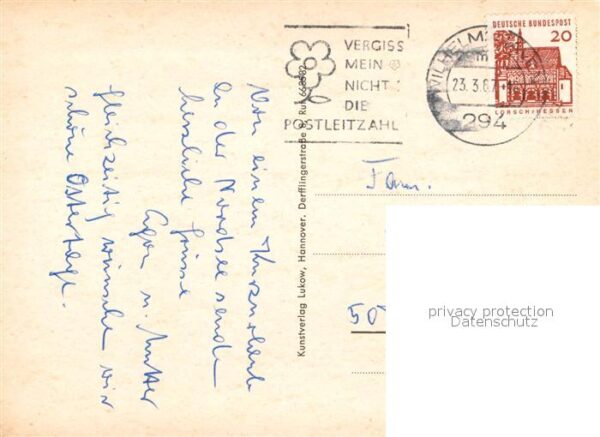 VERGISS
MEIN
NICHT
DIE
POSTLEITZAHL
DEUTSCHE BUNDESPOST
20
LORSCH/HESSEN
23. 3. 67
294
Von einem Kurzurlaub
an der Nordsee sendet
herzliche Grüsse
u. Mutter
gleichzeitig wünschen wir
schöne Ostertage.
Kunstverlag Lukow, Hannover. Derfflingerstraße 8, Ruf
Fam.
50
privacy protection
Datenschutz